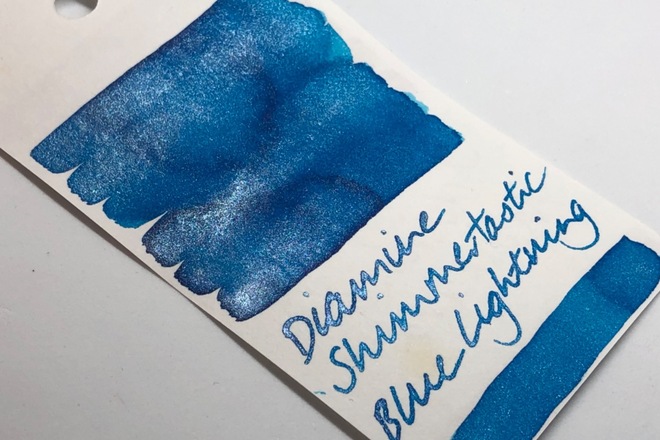 Diamine
Shimmertastic
Blue Lightning